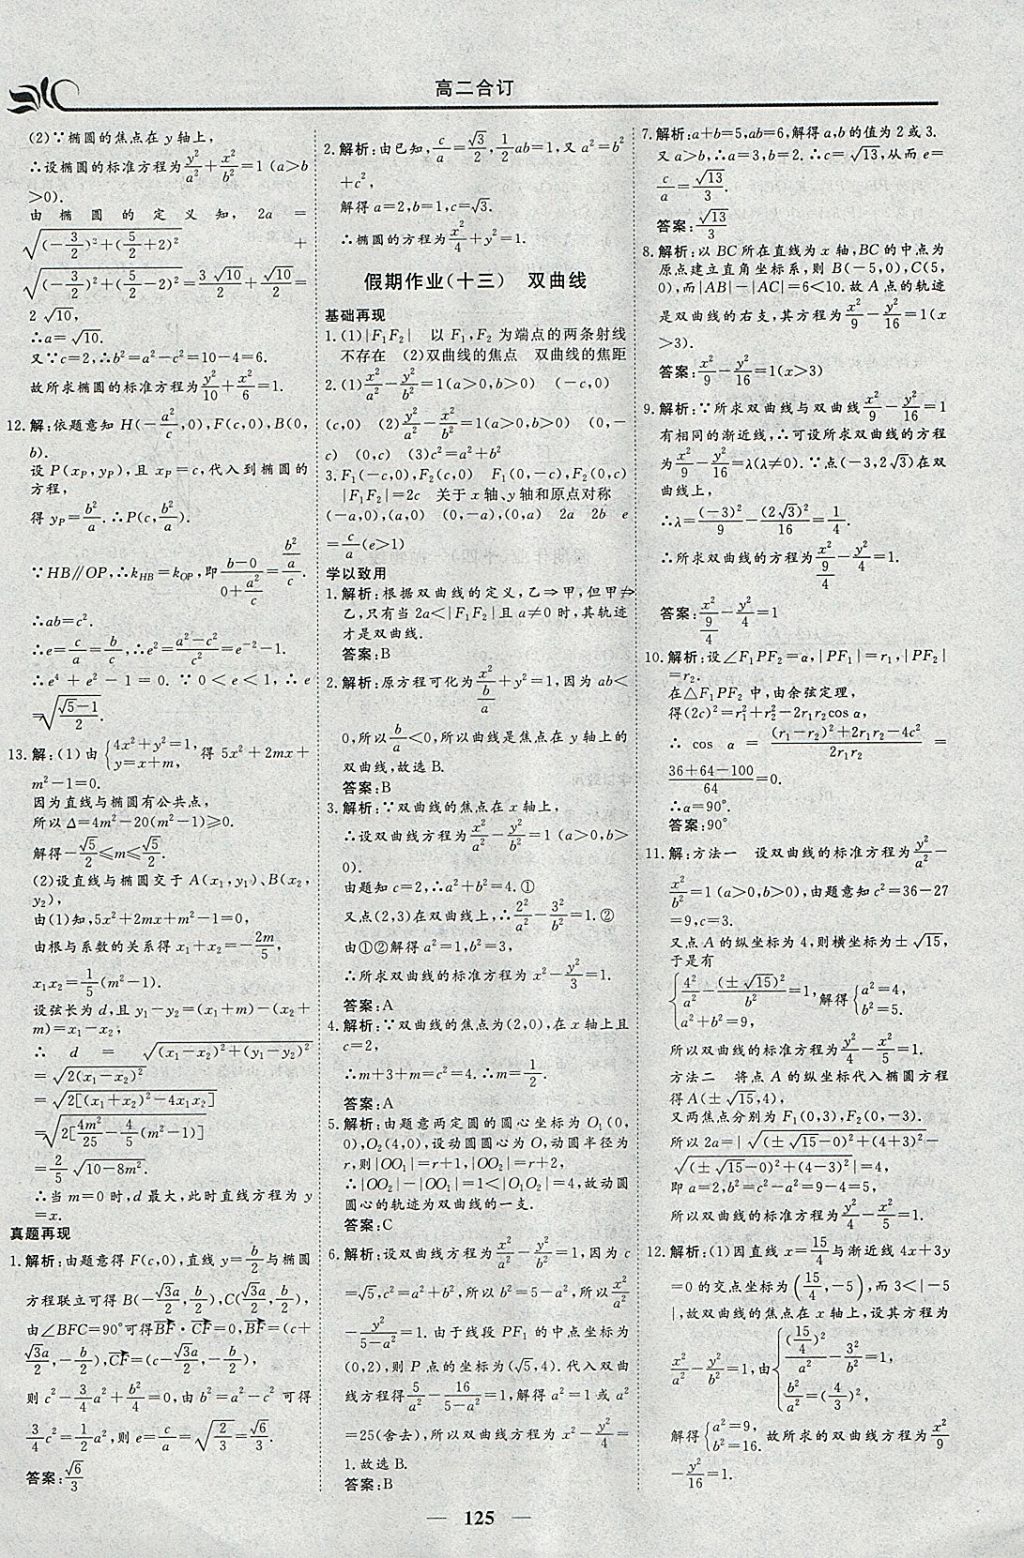 高二合订
(2)∵椭圆的焦点在 y 轴上,
∴设椭圆的标准方程为y²/a²+x²/b²=1 (a>b
>0).
由 椭 圆 的 定 义 知, 2a =
√((-3/2)²+(5/2+2)²) +
√((-3/2)²+(5/2-2)²)=3√10/2+√10/2=
2√10,
∴a=√10.
又∵c=2,∴b²=a²-c²=10-4=6.
故所求椭圆的标准方程为y²/10+x²/6=1.
12.解:依题意知 H(-a²/c,0),F(c,0),B(0,
b).
设 P(x_P,y_P),且 x_P=c,代入到椭圆的
方程,
得 y_P=b²/a.∴P(c,b²/a).
∵HB∥OP,∴k_HB=k_OP,即(b-0)/(0+a²/c)=(b²/a)/c.
∴ab=c².
∴e=c/a=b/c,∴e²=(a²-c²)/c²=e⁻²-1.
∴e⁴+e²-1=0.∵0<e<1,∴e
=√((√5-1)/2).
13.解:(1)由{4x²+y²=1, y=x+m, 得 5x²+2mx+
m²-1=0.
因为直线与椭圆有公共点,
所以 Δ=4m²-20(m²-1)≥0.
解得-√5/2≤m≤√5/2.
(2)设直线与椭圆交于 A(x₁,y₁)、B(x₂,
y₂),
由(1)知,5x²+2mx+m²-1=0,
由根与系数的关系得 x₁+x₂=-2m/5,
x₁x₂=1/5(m²-1).
设弦长为 d,且 y₁-y₂=(x₁+m)-(x₂+
m)=x₁-x₂,
∴ d = √((x₁-x₂)²+(y₁-y₂)²)
=√(2(x₁-x₂)²)
=√(2[(x₁+x₂)²-4x₁x₂])
=√(2[4m²/25-4/5(m²-1)])
=2/5√(10-8m²).
∴当 m=0 时,d 最大,此时直线方程为 y
=x.
真题再现
1.解析:由题意得 F(c,0),直线 y=b/2与椭圆
方程联立可得 B(-√3a/2,b/2),C(√3a/2,b/2),
由∠BFC=90°可得BF·CF=0,BF=(c+
√3a/2,-b/2),CF=(c-√3a/2,-b/2),
则 c²-3/4a²+b²/4=0,由 b²=a²-c² 可得
3/4c²=1/2a²,则 e=c/a=√(2/3)=√6/3.
答案:√6/3
2.解析:由已知,c/a=√3/2,1/2ab=1,又 a²=b²
+c²,
解得 a=2,b=1,c=√3.
∴椭圆的方程为x²/4+y²=1.
假期作业(十三) 双曲线
基础再现
1.(1)|F₁F₂| 以 F₁,F₂ 为端点的两条射线
不存在 (2)双曲线的焦点 双曲线的焦距
2.(1)x²/a²-y²/b²=1(a>0,b>0) (-c,0)
(c,0) (2)y²/a²-x²/b²=1(a>0,b>0) (0,-
c) (0,c) (3)c²=a²+b²
3.F₁(-c,0),F₂(c,0) F₁(0,-c),F₂(0,c)
|F₁F₂|=2c 关于 x 轴、y 轴和原点对称
(-a,0),(a,0) (0,-a),(0,a) 2a 2b e
=c/a(e>1)
学以致用
1.解析:根据双曲线的定义,乙⇒甲,但甲⇏
乙,只有当 2a<|F₁F₂|且 a≠0 时,其轨迹
才是双曲线.
答案:B
2.解析:原方程可化为x²/(b/a)+y²=1,因为 ab<
0,所以b/a<0,所以曲线是焦点在 y 轴上的
双曲线,故选 B.
答案:B
3.解析:∵双曲线的焦点在 x 轴上,
∴设双曲线方程为x²/a²-y²/b²=1 (a>0,b>
0).
由题知 c=2,∴a²+b²=4.①
又点(2,3)在双曲线上,∴2²/a²-3²/b²=1.②
由①②解得 a²=1,b²=3,
∴所求双曲线的标准方程为 x²-y²/3=1.
答案:A
4.解析:∵双曲线的焦点为(2,0),在 x 轴上且
c=2,
∴m+3+m=c²=4.∴m=1/2.
答案:A
5.解析:由题意两定圆的圆心坐标为 O₁(0,
0),O₂(4,0),设动圆圆心为 O,动圆半径为
r,则|OO₁|=r+1,|OO₂|=r+2,
∴|OO₂|-|OO₁|=1<|O₁O₂|=4,故动圆
圆心的轨迹为双曲线的一支.
答案:C
6.解析:设双曲线方程为x²/a²-y²/b²=1,因为 c
=√5,c²=a²+b²,所以 b²=5-a²,所以x²/a²
-y²/(5-a²)=1.由于线段 PF₁ 的中点坐标为
(0,2),则 P 点的坐标为(√5,4).代入双曲
线方程得5/a²-16/(5-a²)=1,解得 a²=1 或 a²
=25(舍去),所以双曲线方程为 x²-y²/4=
1.故选 B.
答案:B
7.解析:a+b=5,ab=6,解得 a,b 的值为 2 或 3.
又 a>b,∴a=3,b=2.∴c=√13,从而 e=
c/a=√13/3.
答案:√13/3
8.解析:以 BC 所在直线为 x 轴,BC 的中点为
原点建立直角坐标系,则 B(-5,0),C(5,
0),而|AB|-|AC|=6<10.故 A 点的轨迹
是双曲线的右支,其方程为x²/9-y²/16=1(x
>3).
答案:x²/9-y²/16=1(x>3)
9.解析:∵所求双曲线与双曲线x²/9-y²/16=1
有相同的渐近线,∴可设所求双曲线的方程
为x²/9-y²/16=λ(λ≠0).∵点(-3,2√3)在双
曲线上,
∴λ=(-3)²/9-(2√3)²/16=1/4.
∴所求双曲线的方程为x²/(9/4)-y²/4=1.
答案:x²/(9/4)-y²/4=1
10.解析:设∠F₁PF₂=α,|PF₁|=r₁,|PF₂|
=r₂.
在△F₁PF₂ 中,由余弦定理,
得(2c)²=r₁²+r₂²-2r₁r₂cos α,
∴ cos α = ((r₁-r₂)²+2r₁r₂-4c²)/(2r₁r₂) =
(36+64-100)/64=0.
∴α=90°.
答案:90°
11.解:方法一 设双曲线的标准方程为y²/a²-
x²/b²=1 (a>0,b>0),由题意知 c²=36-27
=9,c=3.
又点 A 的纵坐标为 4,则横坐标为±√15,
于是有
{4²/a²-(±√15)²/b²=1, a²+b²=9, 解得{a²=4, b²=5.
所以双曲线的标准方程为y²/4-x²/5=1.
方法二 将点 A 的纵坐标代入椭圆方程
得 A(±√15,4),
又两焦点分别为 F₁(0,3),F₂(0,-3).
所以 2a=|√((±√15-0)²+(4+3)²)-
√((±√15-0)²+(4-3)²)|=4,
即 a=2,b²=c²-a²=9-4=5,
所以双曲线的标准方程为y²/4-x²/5=1.
12.解析:(1)因直线 x=15/4与渐近线 4x+3y
=0 的交点坐标为(15/4,-5),而 3<|-5
|,故双曲线的焦点在 x 轴上,设其方程为
x²/a²-y²/b²=1,由{(15/4)²/a²-3²/b²=1, b²/a²=(4/3)²,
解得{a²=9, b²=16. 故所求的双曲线方程为x²/9
-y²/16=1.
125